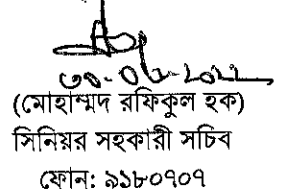 ৩০-০৬-২০২২
(মোহাম্মদ রফিকুল হক)
সিনিয়র সহকারী সচিব
ফোন: ৯১৮০৭০৭